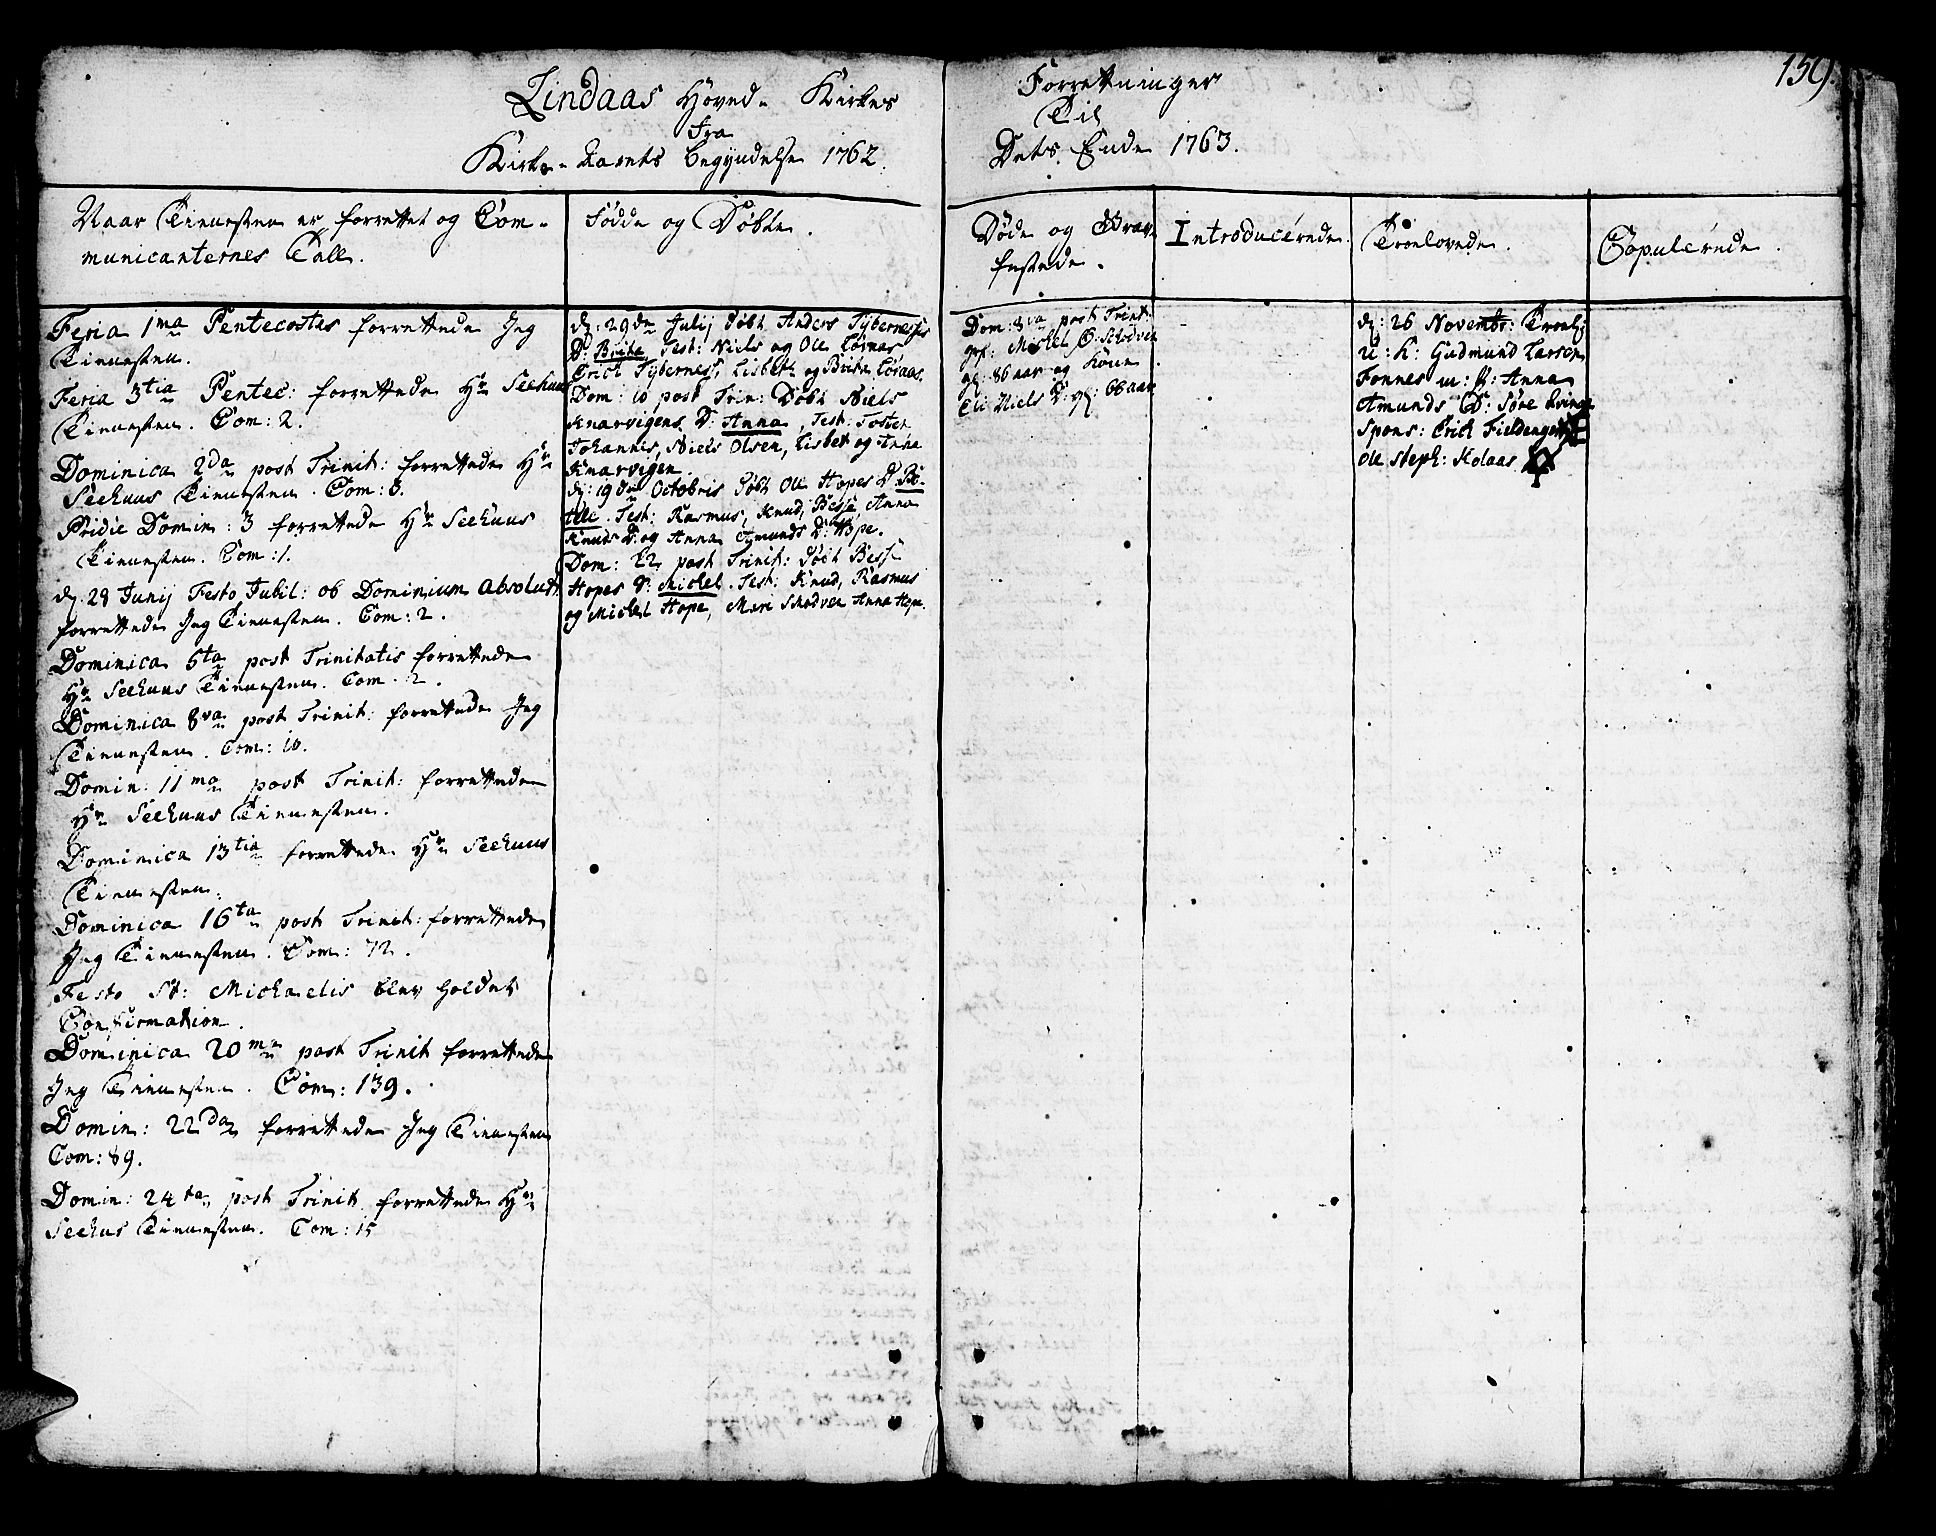 159.
Lindaas Hoved- Kirkes Forretninger
fra Til
Kirke-Aarets begyndelse 1762. Dets Ende 1763.
Naar Tienesten er forrettet og Com-
municanternes Tall.
Feria 1ma Pentecostes forrettede Jeg
Tienesten.
Feria 3tia Pentec: forrettede Hr Seehuus
Tienesten. Com: 2.
Dominica 2da post Trinit: forrettede Hr
Seehuus Tienesten. Com: 3.
Pridie Domin: 3 forrettede Hr Seehuus
Tienesten. Com: 1.
d: 28 Junij Festo Jubil: ob Dominium Absolut:
forrettede Jeg Tienesten. Com: 2.
Dominica 5ta post Trinitatis forrettede
Hr Seehuus Tienesten. Com: 2.
Dominica 8va post Trinit: forrettede Jeg
Tienesten. Com: 10.
Domin: 11ma post Trinit: forrettede
Hr Seehuus Tienesten.
Dominica 13tia forrettede Hr Seehuus
Tienesten.
Dominica 16ta post Trinit: forrettede
Jeg Tienesten. Com: 72.
Festo St: Michaelis blev holdet
Confirmation.
Dominica 20ma post Trinit forrettede
Jeg Tienesten. Com: 139.
Domin: 22da forrettede Jeg Tienesten
Com: 89.
Domin: 24ta post Trinit forrettede Hr
Seehus Tienesten. Com: 15
Fødde og Døbte.
d: 29de Julij Døbt Anders Tybernesses
D: Brita Test: Niels og Ole
Erich Tybernes, Lisbeth og Brita
Dom: 10 post Trin: Døbt Niels
Knarvigens D: Anna, Test: Tosten
Johannis, Niels Olsen, Lisbet og Anna
Knarvigen.
d: 19de Octobris Døbt Ole Hopes D: Bo-
tele. Test: Rasmus, Knud, Besse, Anna
Knuds D: og Anna Amunds D: Hope.
Dom: 22 post Trinit: Døbt Besse
Hopes D: Michel. Test: Knud, Rasmus
og Michel Hope, Mari Schodven Anna Hope.
Døde og Grav-
festede.
Dom: 8va post Trint:
gl: Michel O: Schodven
gl: 86 aar og Kone
Eli Niels D: gl: 66 aar
Introducerede.
Troelovede.
d: 26 Novembr: Troel:
U: K: Gudmund Larsen
Fonnes m: P: Anna
Amunds D:
Spons: Erich
Ole Steph: Kolaas
Copulerede.